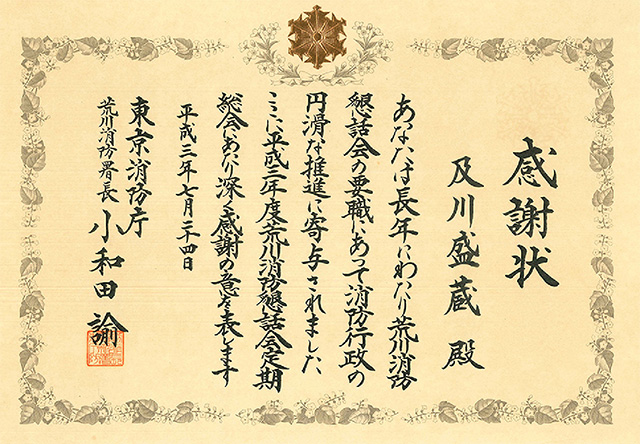 感謝状
及川盛蔵 殿
あなたは長年にわたり荒川消防
懇話会の要職にあって消防行政の
円滑な推進に寄与されました
ここに平成三年度荒川消防懇話会定期
総会にあたり深く感謝の意を表します
平成三年七月二十四日
東京消防庁
荒川消防署長 小和田